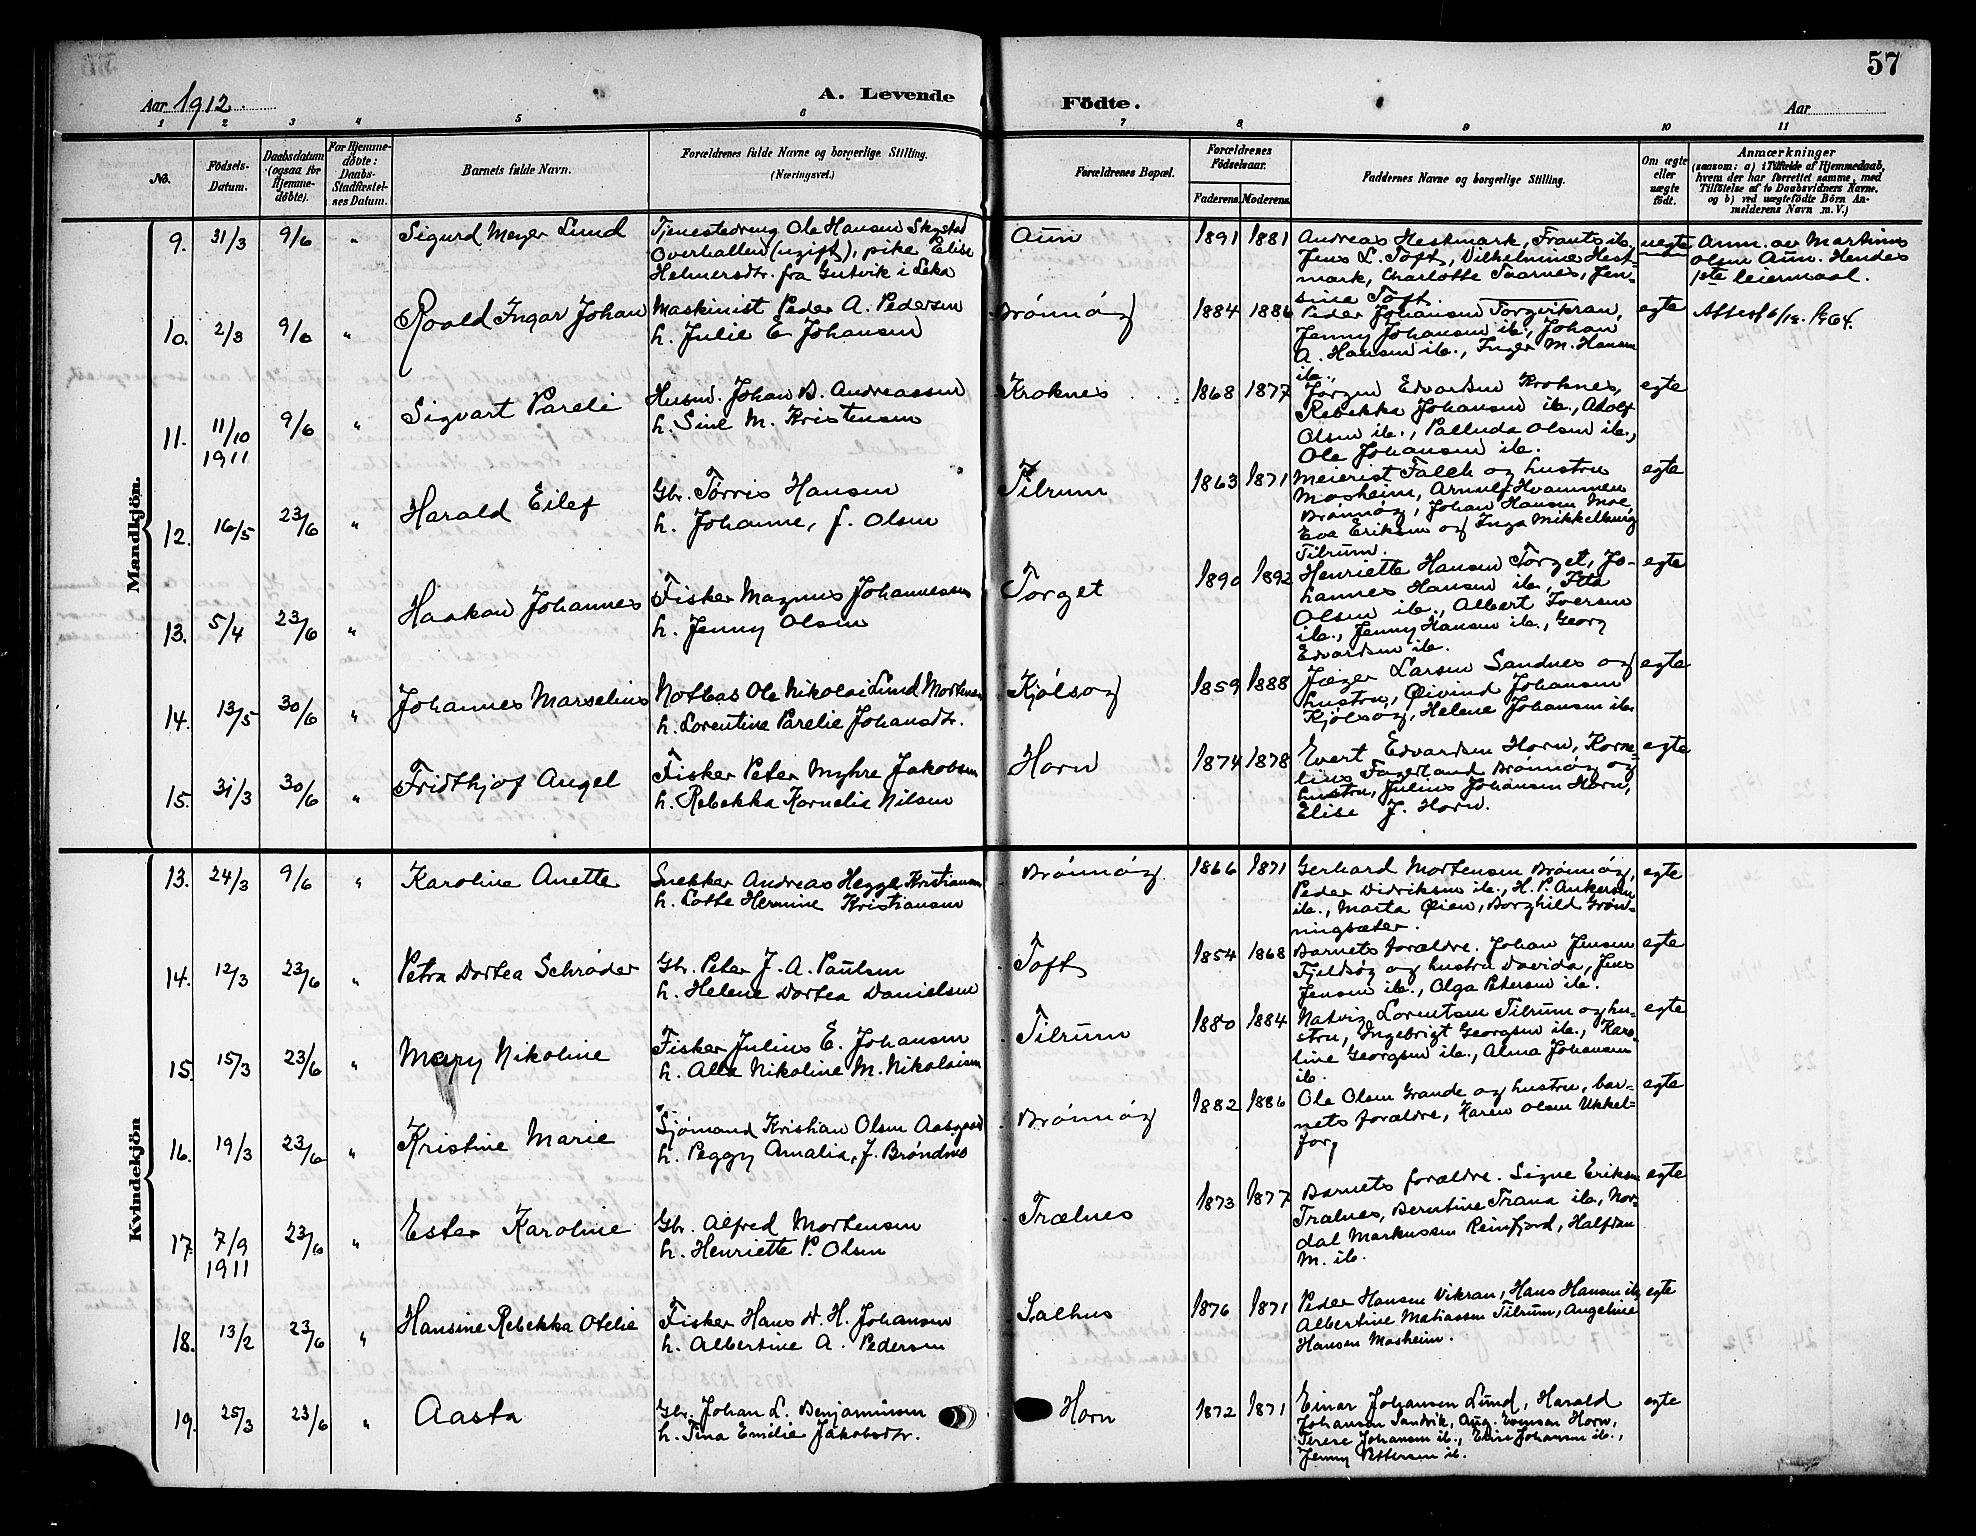 57
Aar 1912. A. Levende Födte. Aar
1 2 3 4 5 6 7 8 9 10 11
No.
Födsels-Datum.
Daabsdatum (ogsaa for Hjemme-døbte).
For Hjemme-døbte: Daabs-Stadfæstel-ses Datum.
Barnets fulde Navn.
Forældrenes fulde Navne og borgerlige Stilling. (Næringsvei.)
Forældrenes Bopæl.
Forældrenes Födselsaar.
Faderens. Moderens.
Faddernes Navne og borgerlige Stilling.
Om ægte eller uægte födt.
Anmærkninger
(saasom: a) i Tilfælde af Hjemmedaab,
hvem der har forrettet samme, med
Tilföielse af to Daabsvidners Navne.
og b) ved uægtefödte Börn An-
melderens Navn m. V.)
Mandkjön.
9. 31/3 9/6 " Sigurd Meyer Lund
Tjenestedreng Ole Hansen Skystad
Overhallen (ugift), pike Elise
Helmersdtr. fra Gutvik i Leka
Aun 1891 1881
Andreas Hestmark, Frants ib.,
Jens L. Toft, Vilhelmine Hest-
mark, Charlotte Taarnes, Jen-
sine Toft.
uegte
Anm. av Martinus
Olsen Aun. Hendes
1ste leiermaal.
10. 2/3 9/6 " Roald Ingar Johan
Maskinist Peder A. Pedersen
h. Julie E Johansen
Brønnøy 1884 1886
Peder Johansen Torgerkran,
Jenny Johansen ib., Johan
A. Hansen ib., Inger M. Hansen
ib.
egte
11. 11/10 1911 9/6 " Sigvart Pareli
Husmd. Johan B. Andreassen
h. Sine M. Kristensen
Kroknes 1868 1877
Jørgen Edvardsen Kroknes,
Rebekka Johansen ib., Adolf
Olsen ib., Palluda Olsen ib.,
Ole Johansen ib.
egte
12. 16/5 23/6 " Harald Eilef
Gbr. Torris Hansen
h. Johanne, f. Olsen
Tilrum 1863 1871
Meierist Falch og hustru
Mosheim, Arnulf Hvammen
Brønnøy, Johan Hansen Moe,
Eva Eriksen og Inga Mikkelborg
Tilrum.
egte
13. 5/4 23/6 " Haakon Johannes
Fisker Magnus Johannessen
h. Jenny Olsen
Torget 1890 1892
Henriette Hansen Torget, Jo-
hannes Hansen ib., Itta
Olsen ib., Albert Iversen
ib., Jenny Hansen ib., Georg
Edvardsen ib.
egte
14. 13/5 30/6 " Johannes Marselius
Notbas Ole Nikolai Lund Mortensen
h. Lorentine Parelie Johansdtr.
Kjølsøy 1859 1888
Jæger Larsen Sandnes og
hustru, Øivind Johansen
Kjølsøy, Helene Johansen ib.
egte
15. 31/3 30/6 " Fridthjof Angel
Fisker Peter Myhre Jakobsen
h. Rebekka Kornelia Nilsen
Horn 1874 1878
Evert Edvardsen Horn, Korne-
lius Fagerland Brønnøy og
hustru, Julius Johansen Horn,
Elise J. Horn.
egte
Kvindekjön
13. 24/3 9/6 " Karoline Anette
Snekker Andreas Hegge Kristiansen
h. Lotte Hermine Kristiansen
Brønnøy. 1866 1871
Gerhard Mortensen Brønnøy,
Peder Didriksen ib., H. P. Ankersen
ib., Marta Øien, Borghild Grøn-
ningsæter.
egte
14. 12/3 23/6 " Petra Dortea Schrøder
Gbr. Peter J. A. Paulsen
h. Helene Dortea Danielsen
Toft 1854 1868
Barnets forældre. Johan Jensen
Fjeldsøy og hustru Davida, Jens
Jensen ib., Olga Petersen ib.
egte
15. 15/3 23/6 " Mary Nikoline
Fisker Julius E. Johansen
h. Alla Nikoline M. Nikolaisen
Tilrum 1880 1884
Natvig Lorentsen Tilrum og hu-
stru, Ingebrigt Georgsen ib., Karo-
line Georgsen ib., Alma Johansen
ib.
egte
16. 19/3 23/6 " Kristine Marie
Sjømand Kristian Olsen Aasgaard
h. Peggy Amalia, f. Brøndbo
Brønnøy 1882 1886
Ole Olsen Grande og hustru, bar-
nets forældre, Karen Olsen Ukkel-
forg
egte
17. 7/9 1911 23/6 " Ester Karoline
Gbr. Alfred Mortensen
h. Henriette P. Olsen
Trælnes 1873 1877
Barnets forældre. Signe Eriksen
Trælnes, Berntine Trana ib., Nor-
dal Markussen Reinfjord, Halfdan
M. ib.
egte
18. 13/2 23/6 " Hansine Rebekka Otelie
Fisker Hans W. H. Johansen
h. Albertine A. Pedersen
Salhus 1876 1871
Peder Hansen Vikran, Hans Hansen ib.,
Albertine Matiassen Tilrum, Angeline
Hansen Mosheim.
egte
19. 25/3 23/6 " Aasta
Gbr. Johan L. Benjaminsen
h. Tina Emilie Jakobsdtr.
Horn 1872 1871
Einar Johansen Lund, Harald
Johansen Sandvik, Aug. Evensen Horn,
Terese Johansen ib., Elise Johansen ib.,
Jenny Pettersen ib.
egte